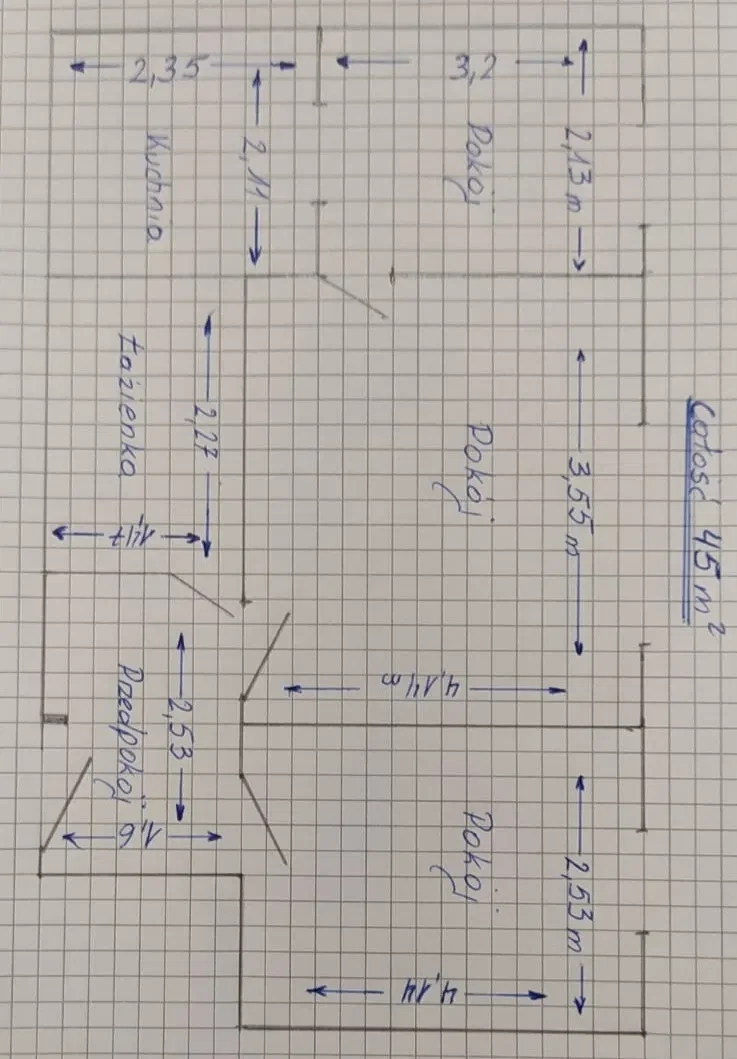 Całość 45 m²
2,35
3,2
2,13 m
2,11
Kuchnia
Pokój
Łazienka
2,27
1,47
Pokój
3,55 m
4,14 m
Przedpokój
2,53
1,6
Pokój
2,53 m
4,14